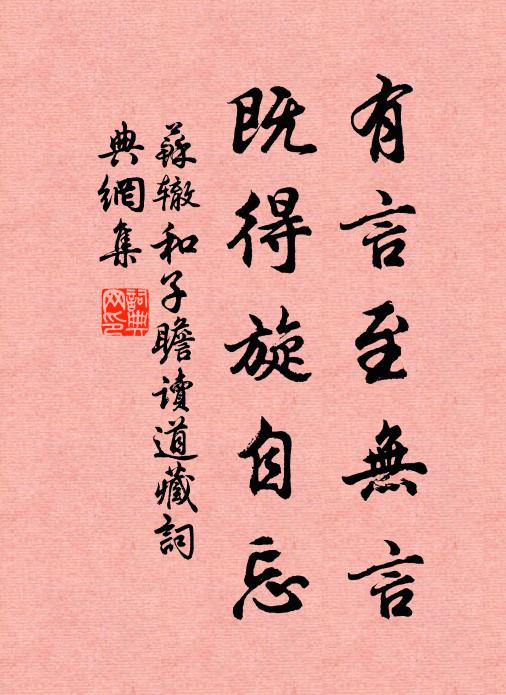 有言至無言
既得旋自忘
蘇辙和子瞻讀道藏詞
典網集
詞典
网印